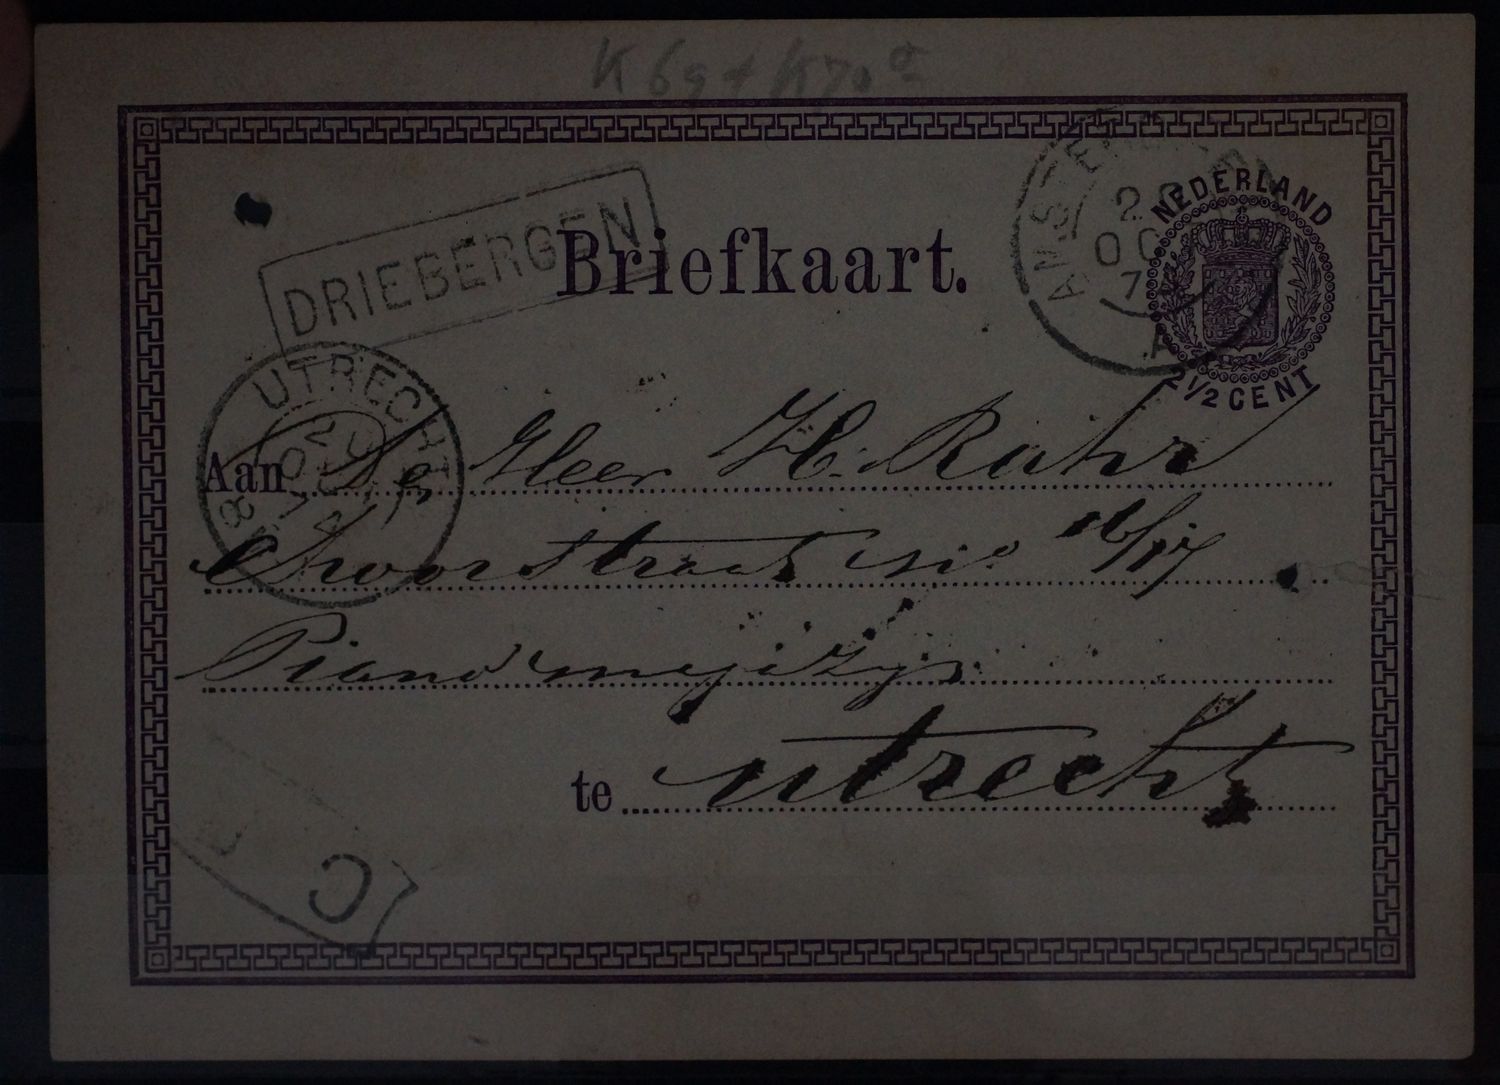 K69+K70
DRIEBERGEN
Briefkaart.
AMSTERDAM
20
OC
7
A
NEDERLAND
2½ CENT
UTRECHT
8
Aan De Heer H. Rahr
Choorstraat No 16/17
Piano
te Utrecht
C